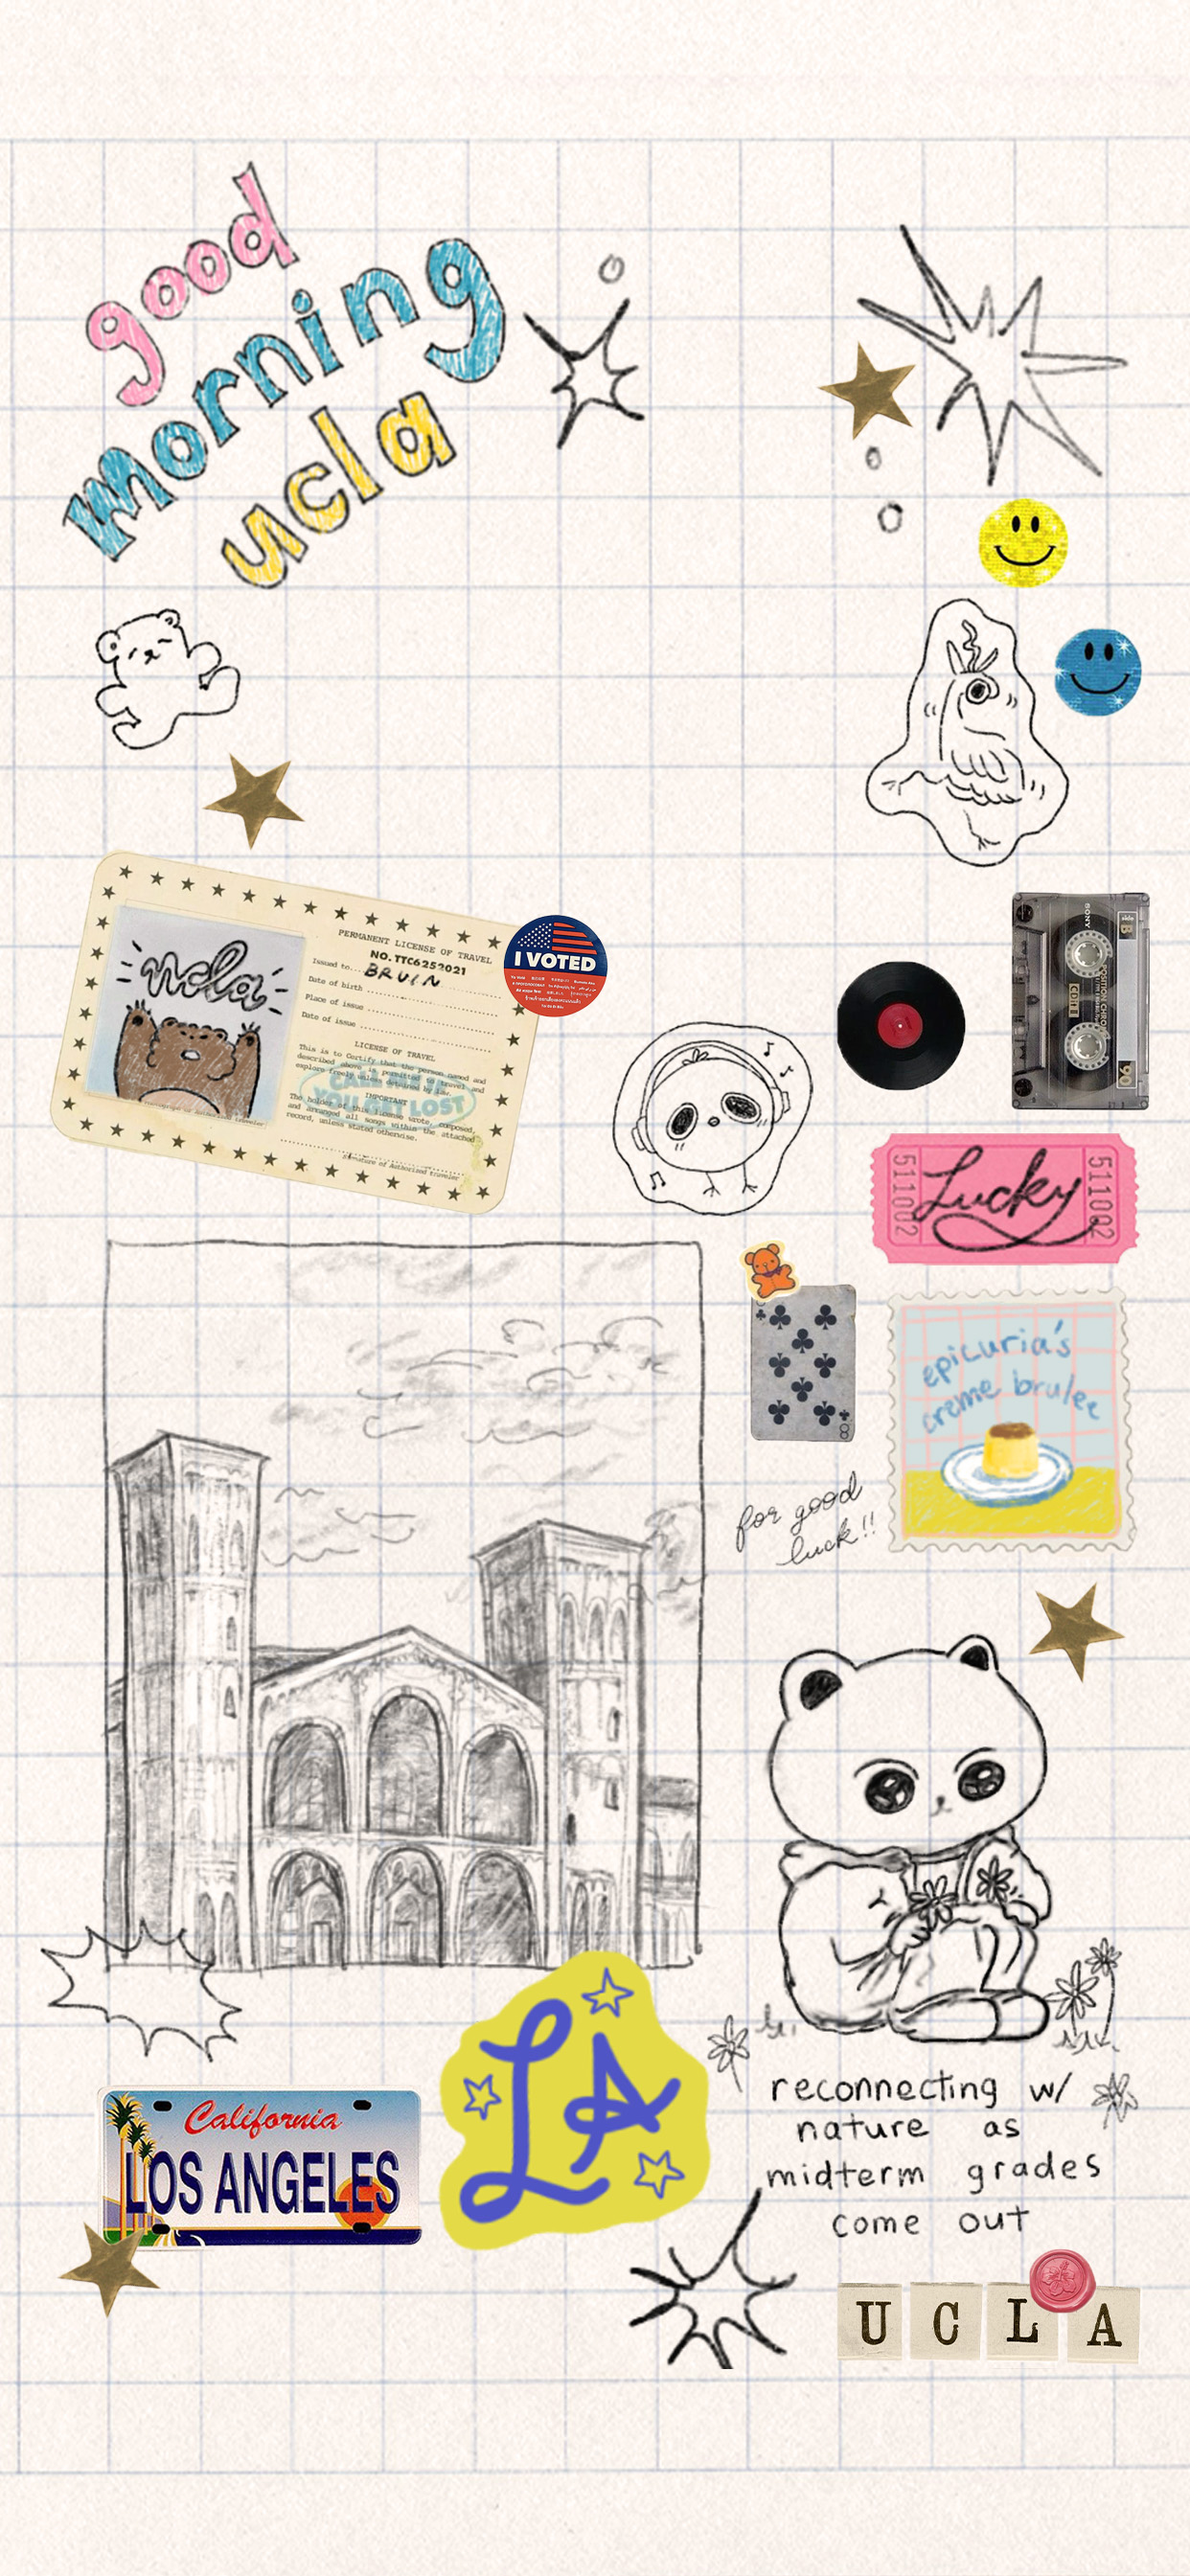 good
morning
ucla
ucla
PERMANENT LICENSE OF TRAVEL
NO. TTC6252021
Issued to... BRUIN
Date of birth
Place of issue
Date of issue
LICENSE OF TRAVEL
This is to Certify that the person named and
described above is permitted to travel and
explore freely unless detained by
IMPORTANT
The holder of this license wrote, composed,
and arranged all songs within the attached
record, unless stated otherwise.
Signature of Authorized Traveler
LOST
I VOTED
SONY
side B
90
511002
Lucky
511002
8
epicuria's
creme brulee
for good
luck!!
California
LOS ANGELES
LA
reconnecting w/
nature as
midterm grades
come out
UCLA